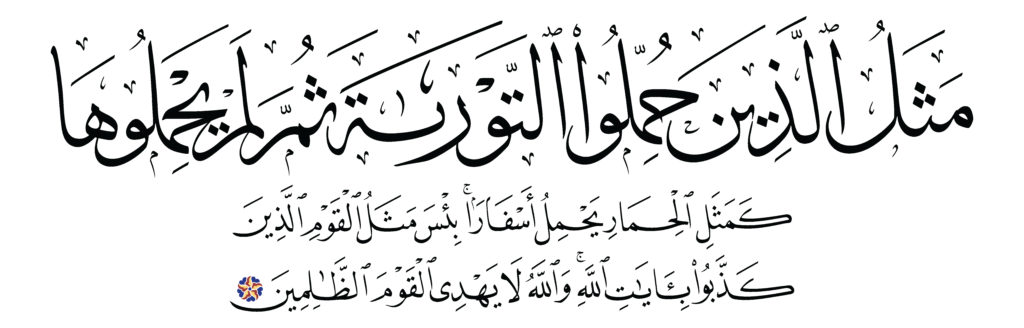 مَثَلُ ٱلَّذِينَ حُمِّلُوا۟ ٱلتَّوْرَىٰةَ ثُمَّ لَمْ يَحْمِلُوهَا
كَمَثَلِ ٱلْحِمَارِ يَحْمِلُ أَسْفَارًۢا ۚ بِئْسَ مَثَلُ ٱلْقَوْمِ ٱلَّذِينَ
كَذَّبُوا۟ بِـَٔايَـٰتِ ٱللَّهِ ۚ وَٱللَّهُ لَا يَهْدِى ٱلْقَوْمَ ٱلظَّـٰلِمِينَ